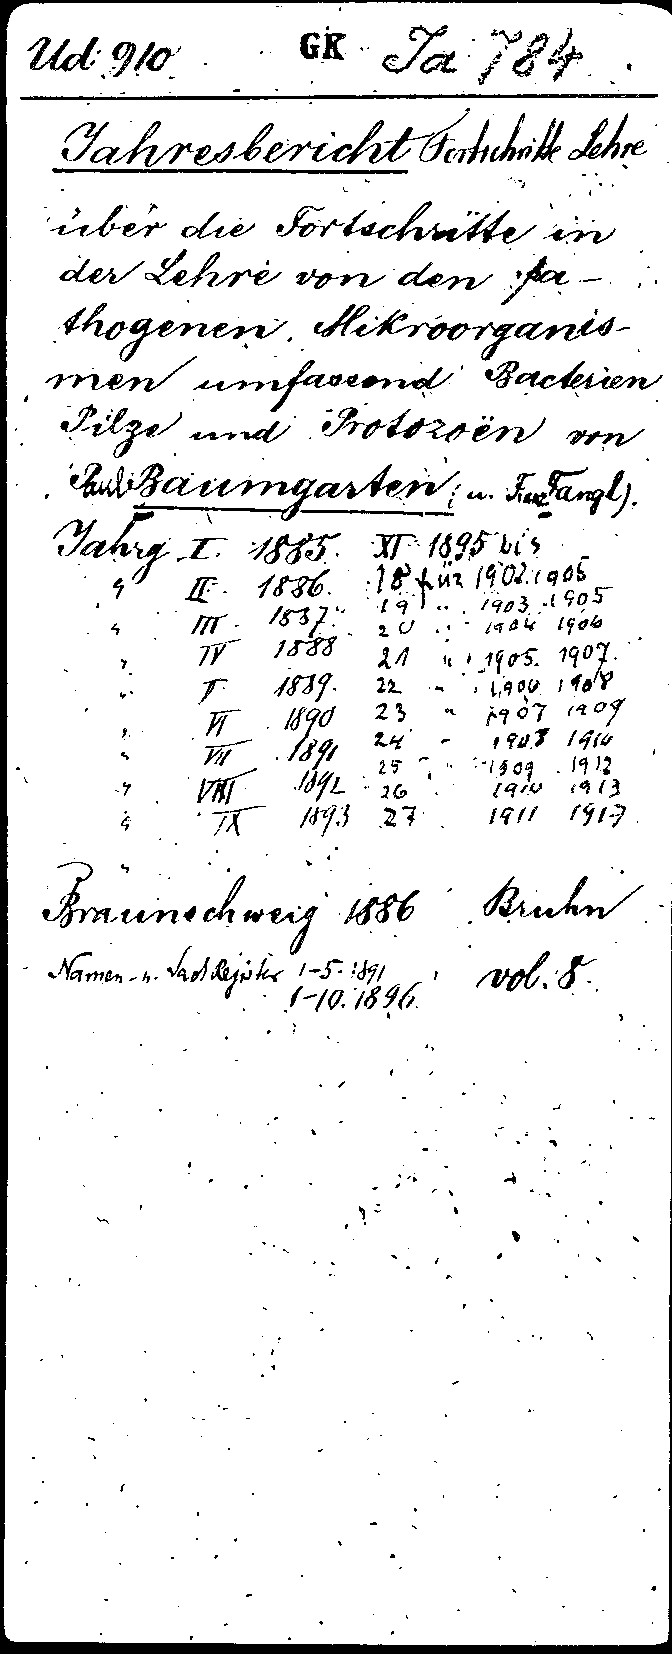 Ud 910 GK Ja 784
Jahresbericht Fortschritte Lehre
über die Fortschritte in
der Lehre von den pa-
thogenen Mikroorganis-
men umfassend Bacterien
Pilze und Protozoën von
Paul Baumgarten (u. Franz Tangl).
Jahrg I. 1885. XI 1895 bis
" II 1886. 18 für 1902. 1905
" III 1887. 19 " 1903 1905
" IV 1888 20 " 1904 1906
" V 1889. 21 " 1905. 1907.
" VI 1890 22 " 1906 1908
" VII 1891 23 " 1907 1909
" VIII 1892 24 " 1908 1910
" IX 1893 25 " 1909 1912
26 1910 1913
27 1911 1917
Braunschweig 1886 Bruhn
Namen- u. Sach Register 1-5. 1891 vol. 8.
1-10. 1896.